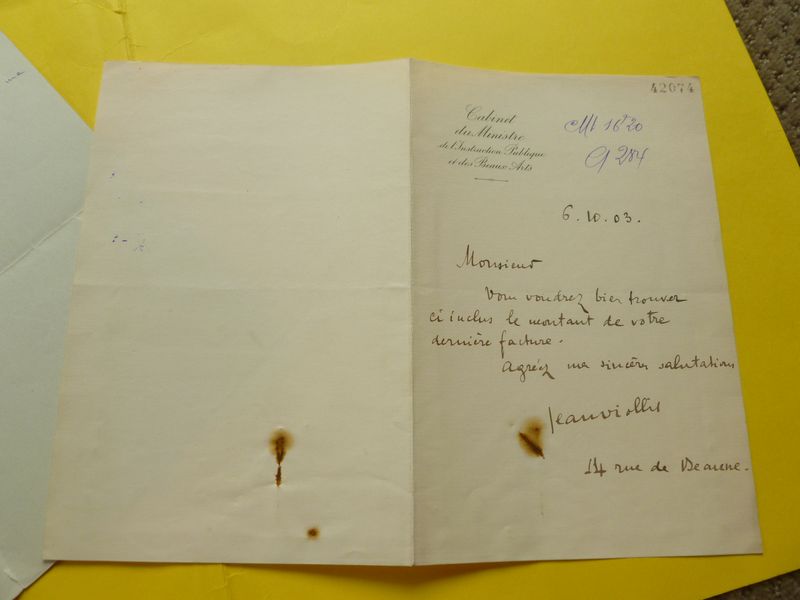 42074
Cabinet
du Ministre
de l'Instruction Publique
et des Beaux Arts
Mt 16 f 20
G 284
6.10.03.
Monsieur
Vous voudrez bien trouver
ci inclus le montant de votre
dernière facture.
Agréez mes sincères salutations
Jean Viollis
14 rue de Beaune.